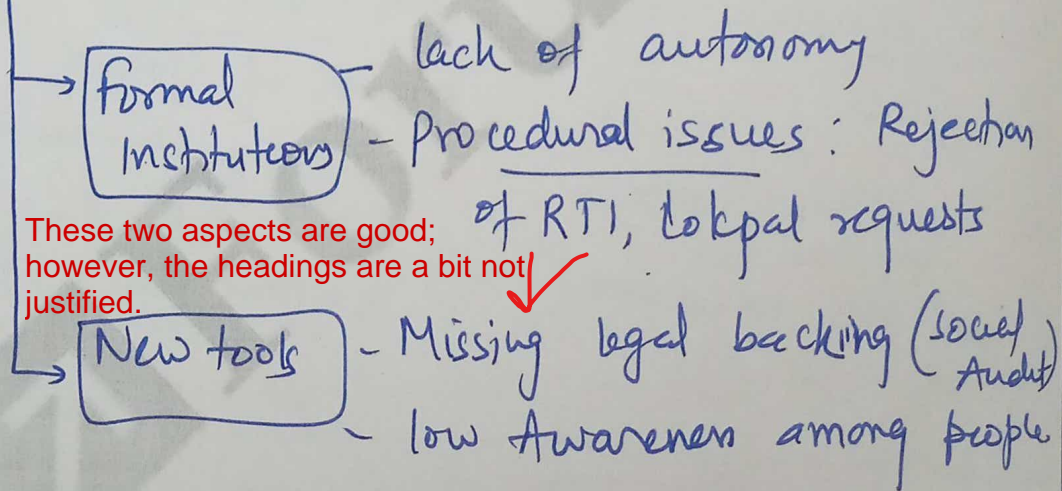 lack of autonomy
Formal
Institutions
- Procedural issues : Rejection
of RTI, Lokpal requests
These two aspects are good;
however, the headings are a bit not
justified.
New tools
- Missing legal backing (social
Audit)
- low Awareness among people